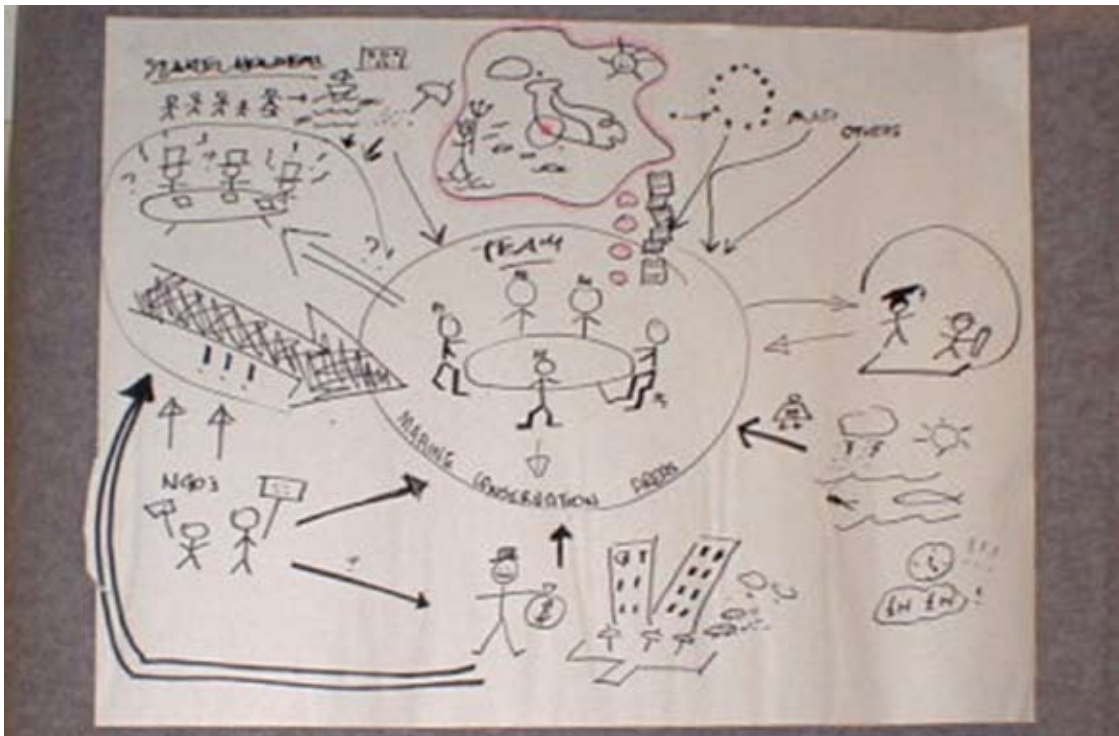 STAKEHOLDERS
AND
OTHERS
TEAM
? !
! ! !
MARINE CONSERVATION AREAS
NGOs
?
£